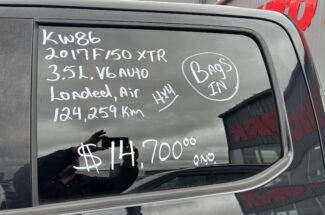 KW86
2017 F150 XTR
3.5L, V6 AUTO
Loaded, Air
4x4
124,259 Km
BAGS
IN
$14,700.00
o.n.o.